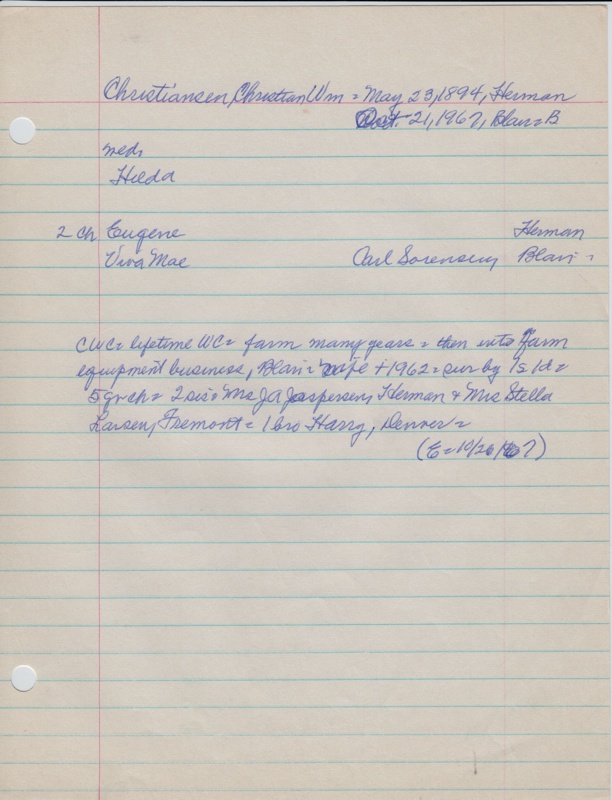 Christiansen, Christian Wm = May 23, 1894, Herman
Oct. 21, 1967, Blair = B
med,
Hilda
2 ch Eugene Herman
Viva Mae Carl Sorensen, Blair =
CWC = lifetime WC = farm many years = then into farm
equipment business, Blair = wife + 1962 = sur by 1s 1d =
5 gr ch = 2 sis = Mrs J A Jaspersen, Herman & Mrs Stella
Larsen, Fremont = 1 bro Harry, Denver =
(E = 10/26/67)